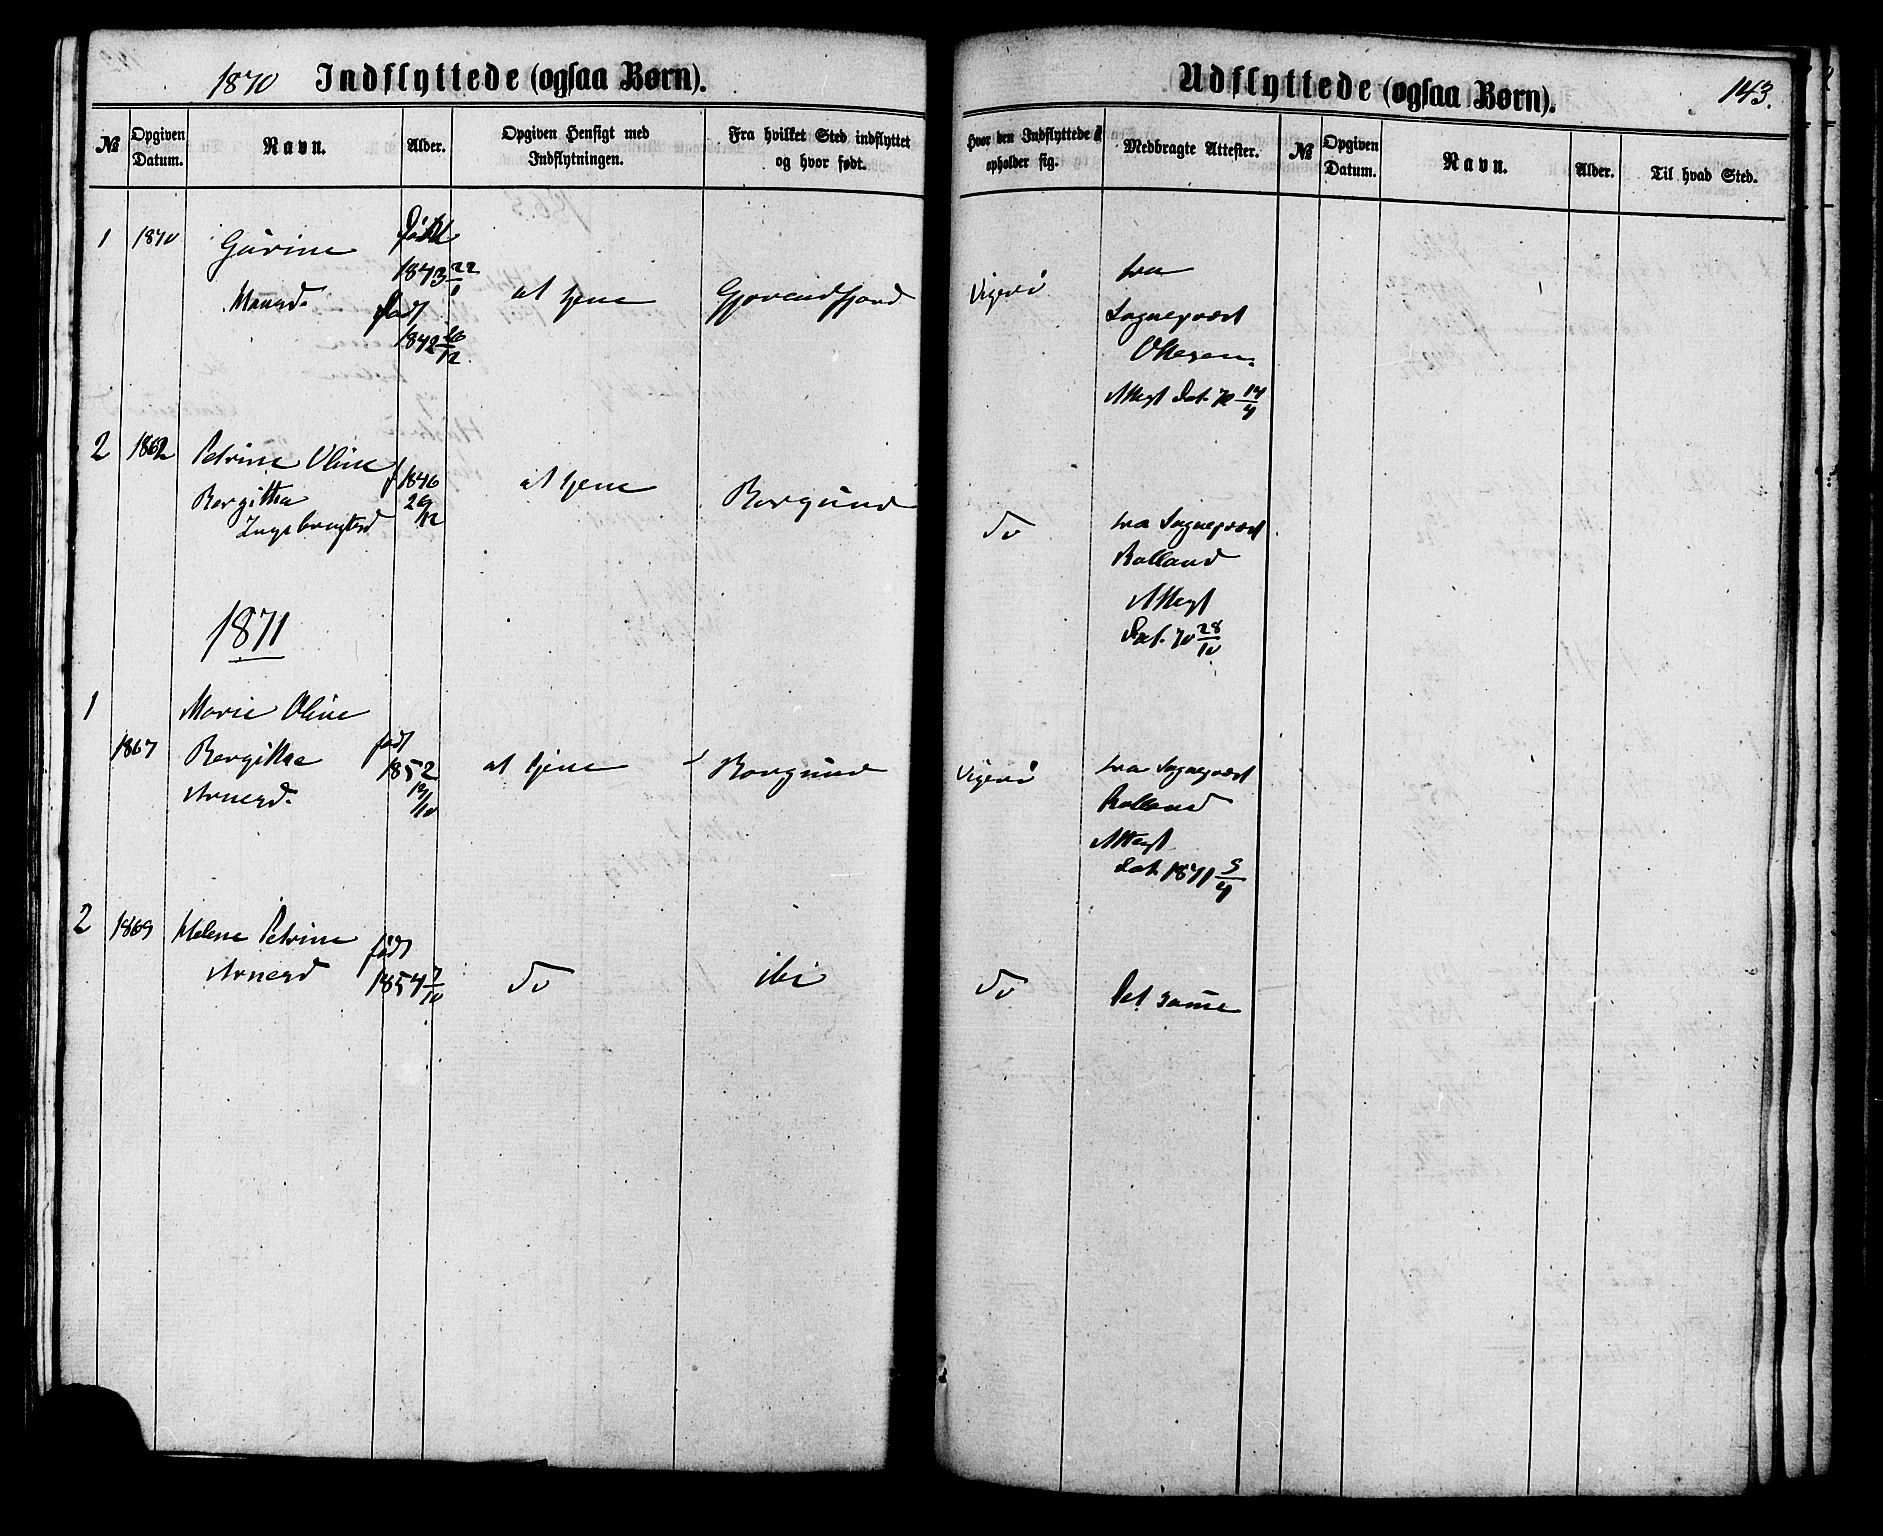 1870 Indflyttede (ogsaa Børn).
№ Opgiven Datum. Navn. Alder. Opgiven Hensigt med Indflytningen. Fra hvilket Sted indflyttet og hvor født.
1 1870 Gurine født
1843 22/1
Monsd. født
1842 26/12
at tjene
2 1862 Petrine Oline f
Bergitha 1846
Ingebrigtsd 29/12
at tjene Borgund
1871
1 Marie Oline
1867 Bergitha født
Arnesd. 1852
19/10
at tjene Borgund
2 1869 Helene Petrine født
Arnesd 1854 7/10 do ibi
Udflyttede (ogsaa Børn). 143.
Hvor den Indflyttede opholder sig. Medbragte Attester. № Opgiven Datum. Navn. Alder. Til hvad Sted.
Vigerø fra
Sognepræst
Ottesen.
Attest Dat. 70 14/4
do fra Sognepræst
Balland
Attest
Dat. 70 28/10
Vigerø fra Sognepræst
Balland
Attest
Dat. 1871 5/4
do Det samme